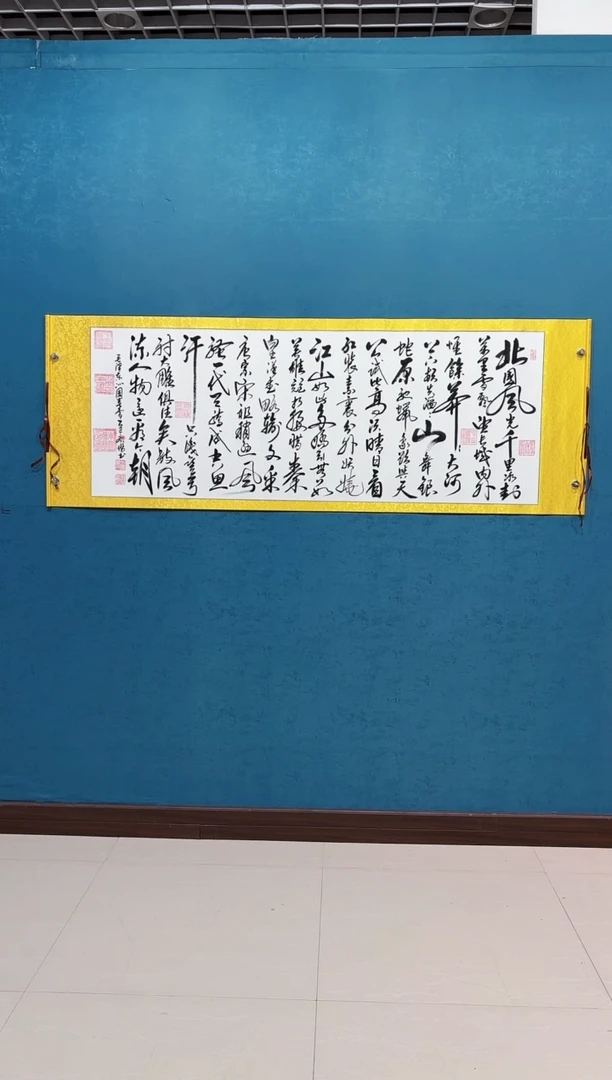 北国风光千里冰封
万里雪飘望长城内外
惟餘莽莽大河
上下顿失滔滔山舞银
蛇原驰蜡象欲与天
公试比高须晴日看
红装素裹分外妖娆
江山如此多娇引无数
英雄竞折腰惜秦
皇汉武略输文采
唐宗宋祖稍逊风
骚一代天骄成吉思
汗只识弯弓
射大雕俱往矣数风
流人物还看今朝
毛泽东沁园春雪